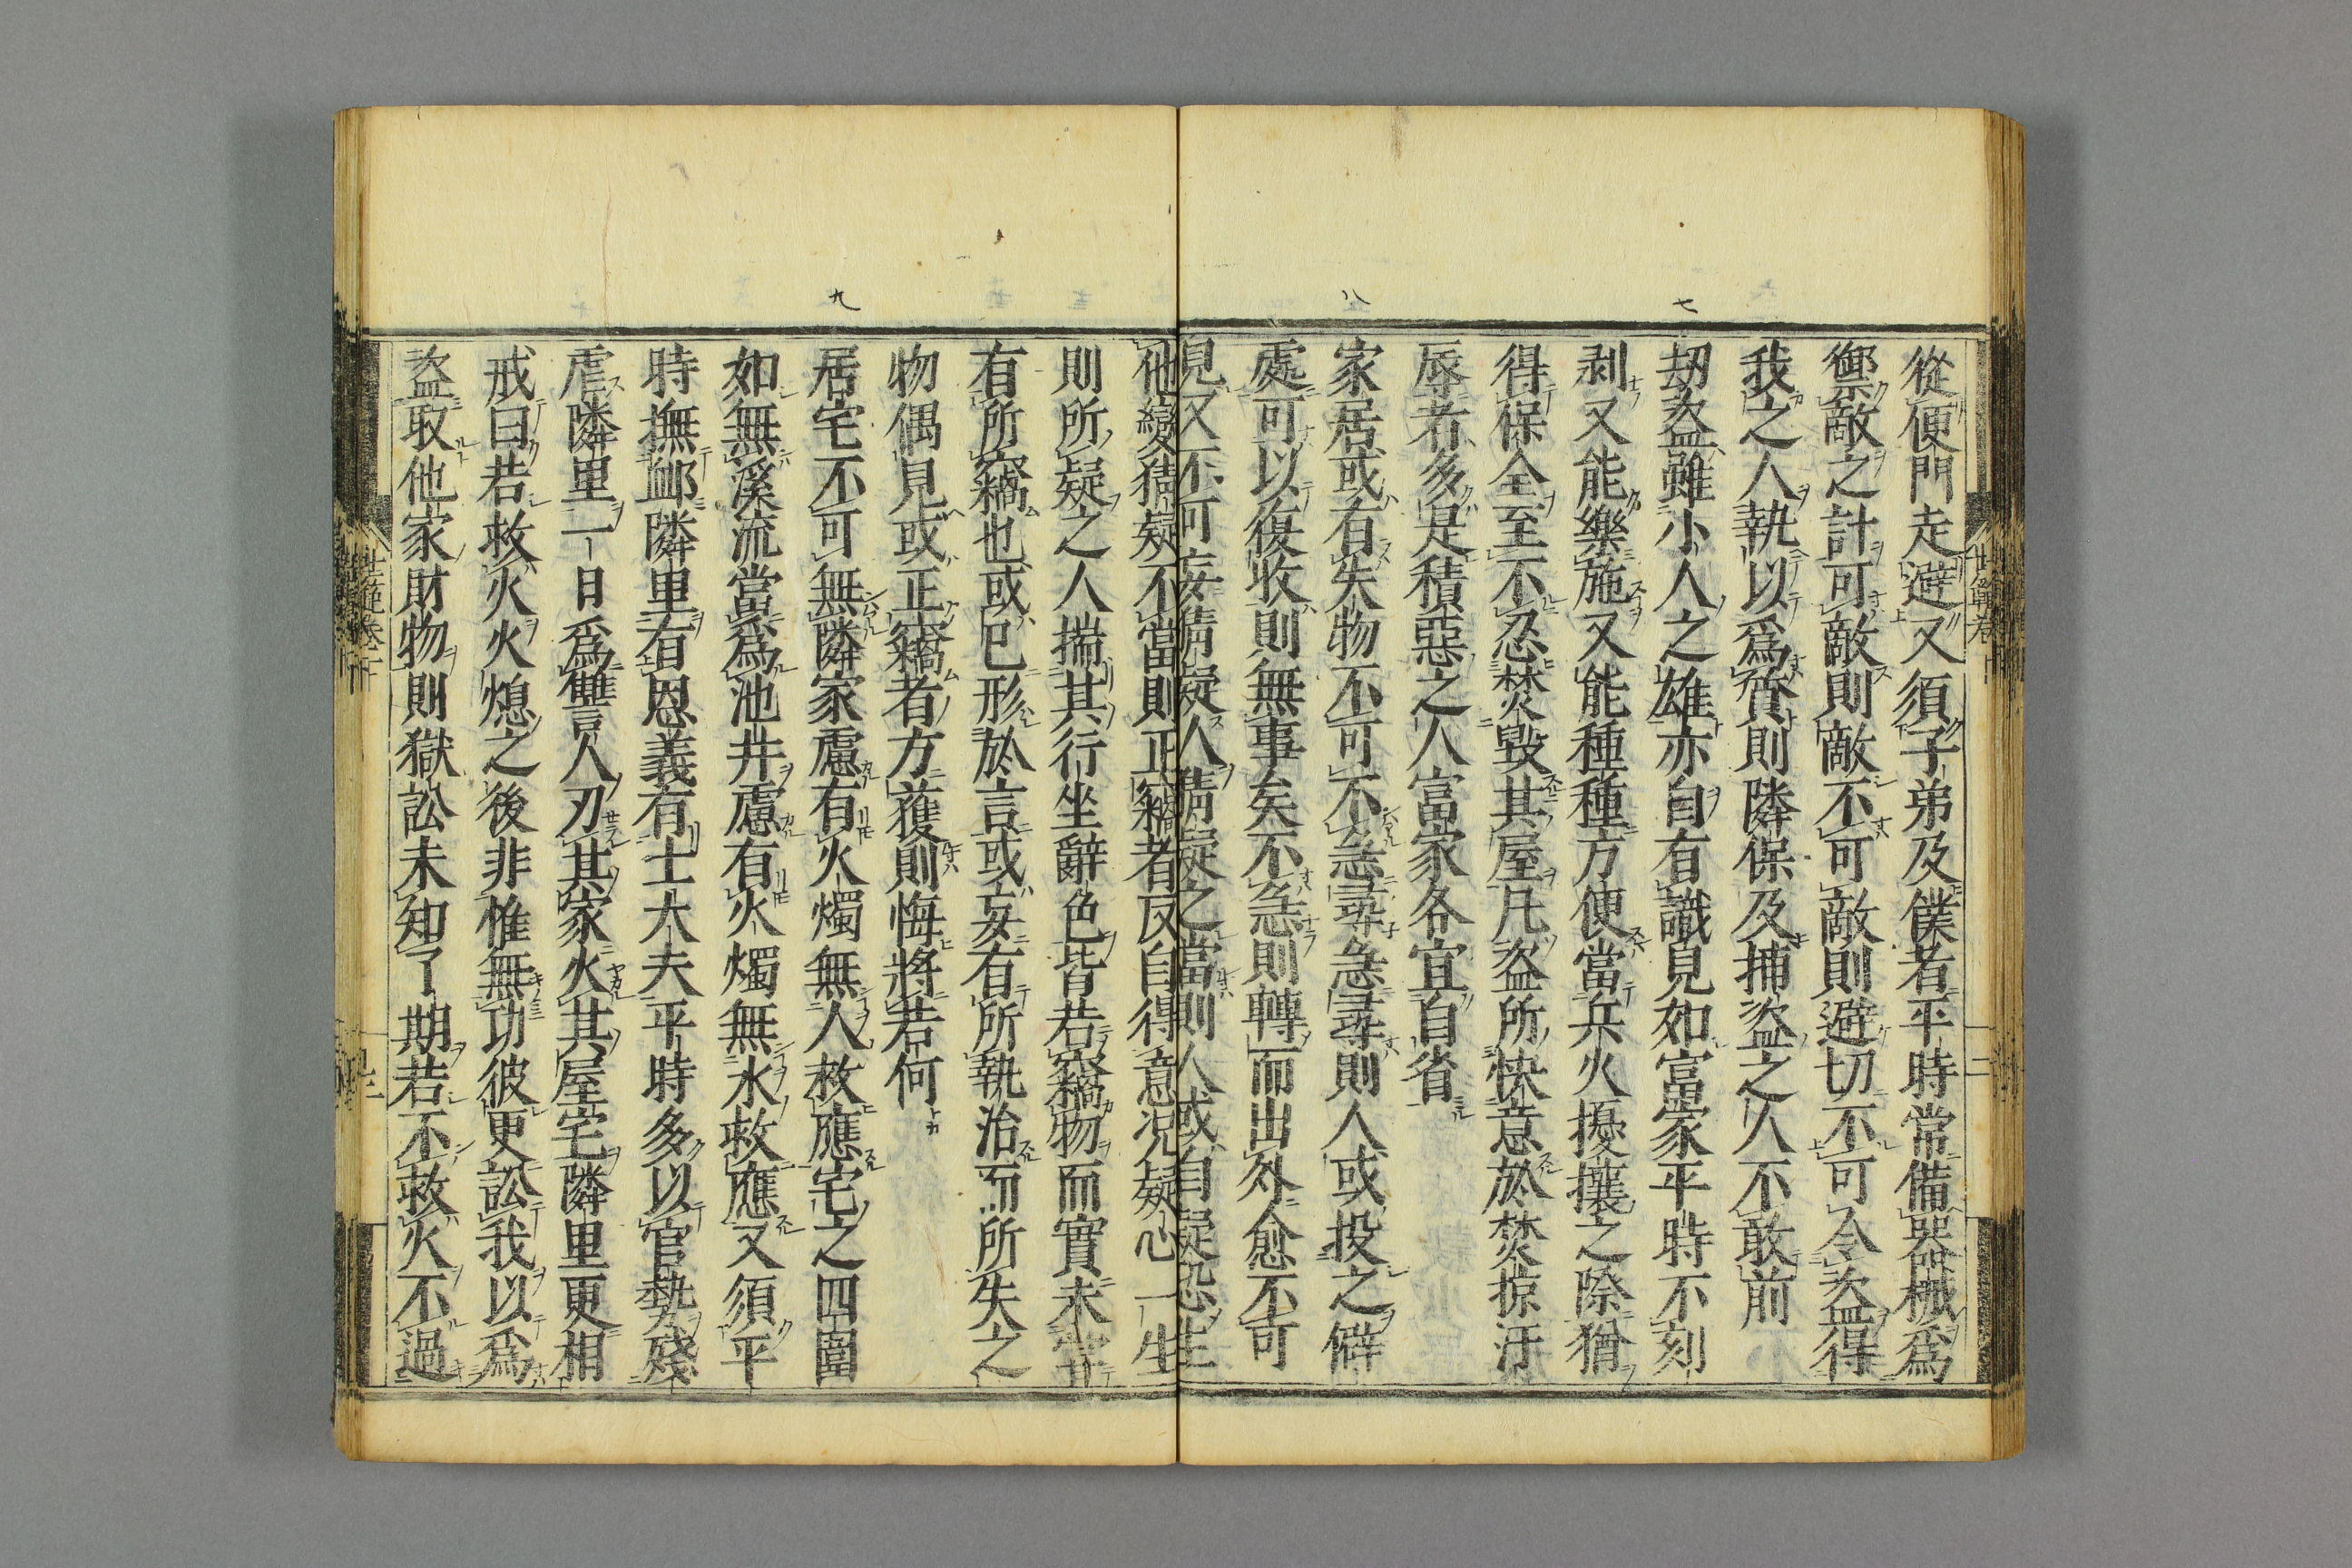 七
八
從便門走避又須子弟及僕者平時常備器械爲
禦敵之計可敵則敵不可敵則避切不可令盜得
我之人執以爲質則隣保及捕盜之人不敢前
刼盜雖小人之雄亦自有識見如富家平時不刻
剥又能樂施又能種種方便當兵火擾攘之際猶
得保全至不忍焚毀其屋凡盜所快意於焚掠汙
辱者多是積惡之人富家各宜自省
家居或有失物不可不急尋急尋則人或投之僻
處可以復收則無事矣不急則轉而出外愈不可
見又不可妄猜疑人猜疑之當則人或自疑恐生
九
他變猜疑不當則正竊者反自得意况疑心一生
則所疑之人揣其行坐辭色皆若竊物而實未
有所竊也或已形於言或妄有所執治而所失之
物偶見或正竊者方獲則悔將若何
居宅不可無隣家慮有火燭無人救應宅之四圍
如無溪流當爲池井慮有火燭無水救應又須平
時撫䘏隣里有恩義有士大夫平時多以官勢殘
虐隣里一日爲讐人刃其家火其屋宅隣里更相
戒曰若救火火熄之後非惟無功彼更訟我以爲
盜取他家財物則獄訟未知了期若不救火不過